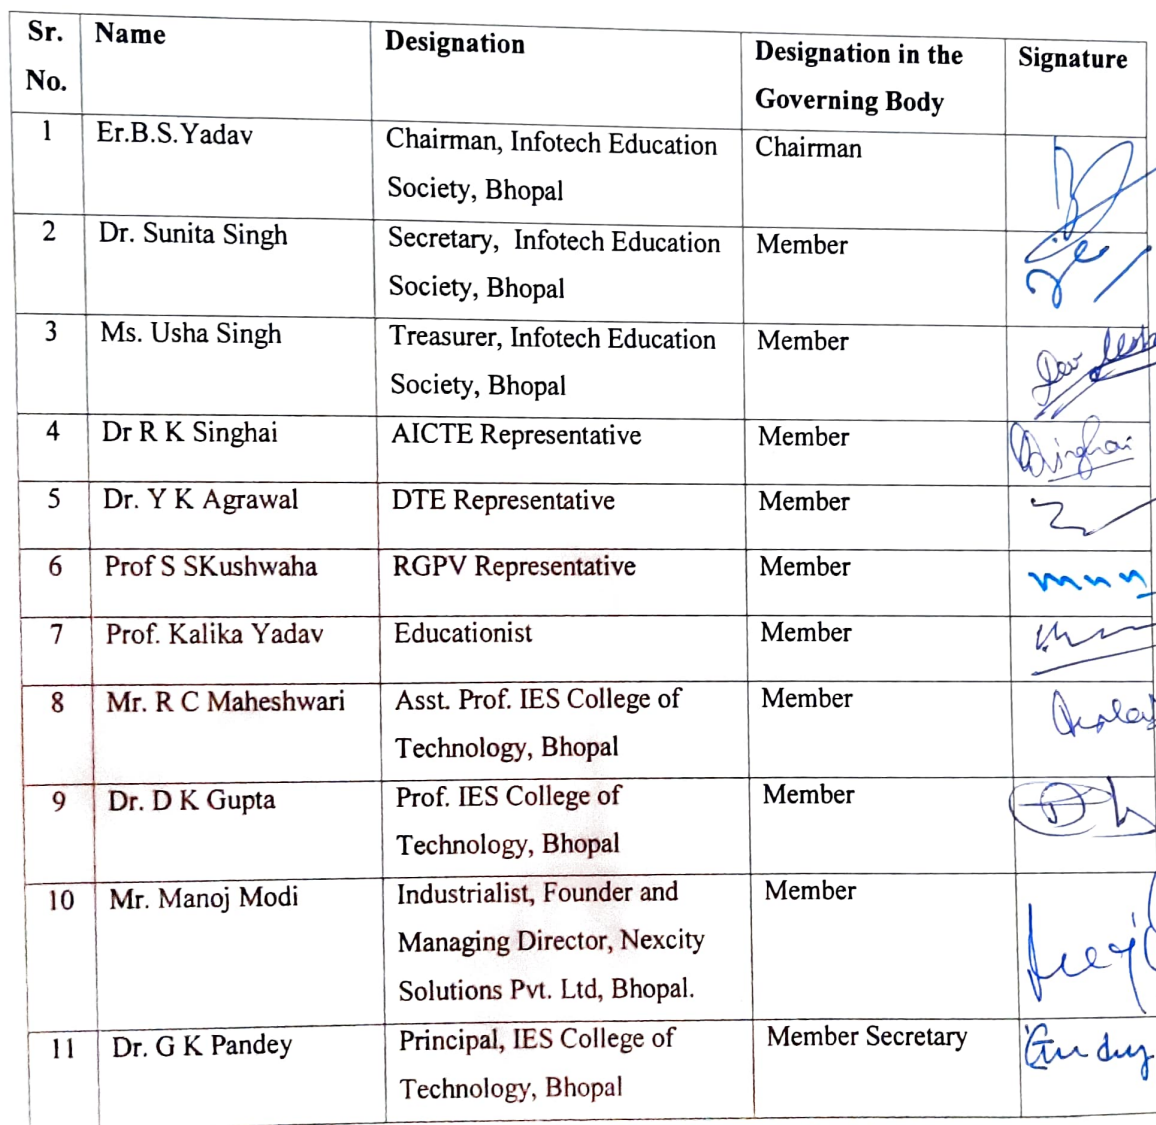 Sr. No. Name Designation Designation in the Governing Body Signature
1 Er.B.S.Yadav Chairman, Infotech Education Society, Bhopal Chairman
2 Dr. Sunita Singh Secretary, Infotech Education Society, Bhopal Member
3 Ms. Usha Singh Treasurer, Infotech Education Society, Bhopal Member
4 Dr R K Singhai AICTE Representative Member Singhai
5 Dr. Y K Agrawal DTE Representative Member
6 Prof S SKushwaha RGPV Representative Member
7 Prof. Kalika Yadav Educationist Member
8 Mr. R C Maheshwari Asst. Prof. IES College of Technology, Bhopal Member
9 Dr. D K Gupta Prof. IES College of Technology, Bhopal Member
10 Mr. Manoj Modi Industrialist, Founder and Managing Director, Nexcity Solutions Pvt. Ltd, Bhopal. Member
11 Dr. G K Pandey Principal, IES College of Technology, Bhopal Member Secretary